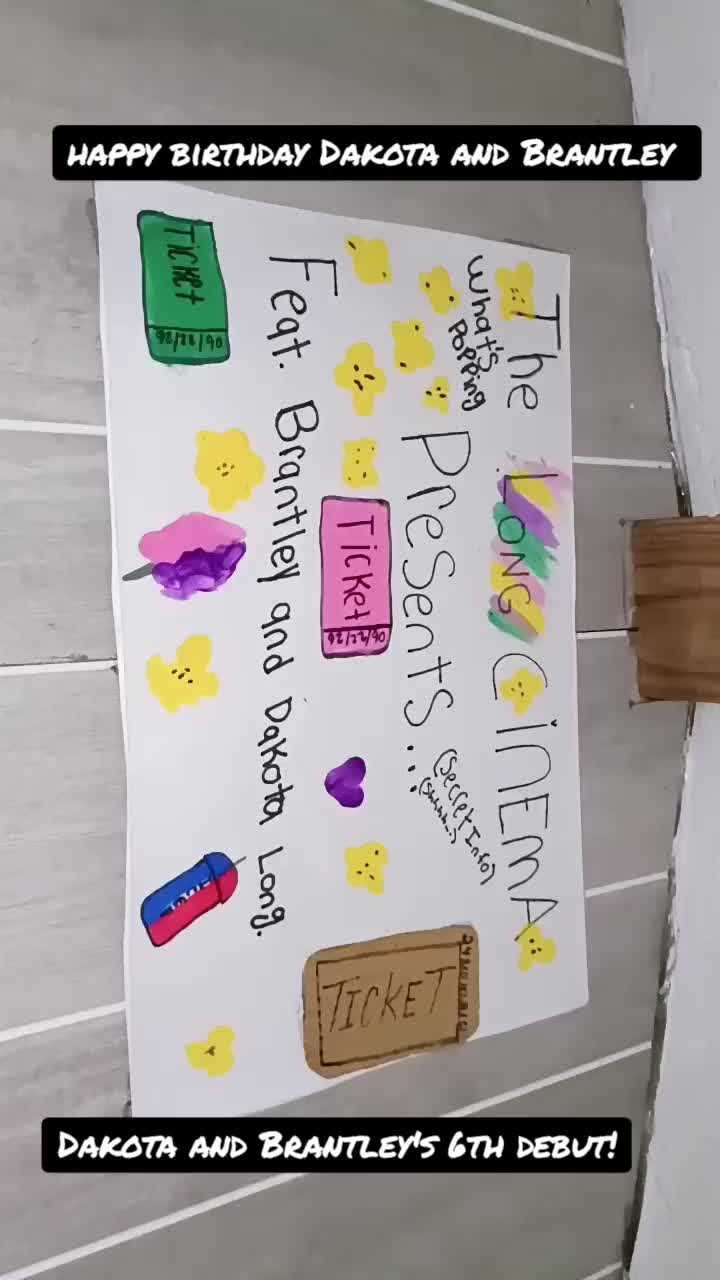 HAPPY BIRTHDAY DAKOTA AND BRANTLEY
The LONG CINEMA
What's
Popping
Presents...
(Secret Info)
(Shhhh..)
Ticket
06/22/26
Feat. Brantley and Dakota Long.
Ticket
06/22/26
TICKET
DAKOTA AND BRANTLEY'S 6TH DEBUT!